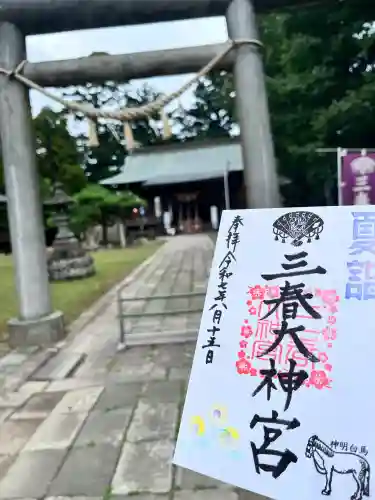 夏詣
三春大神宮
奉拝 令和七年八月十五日
神明白馬
三春